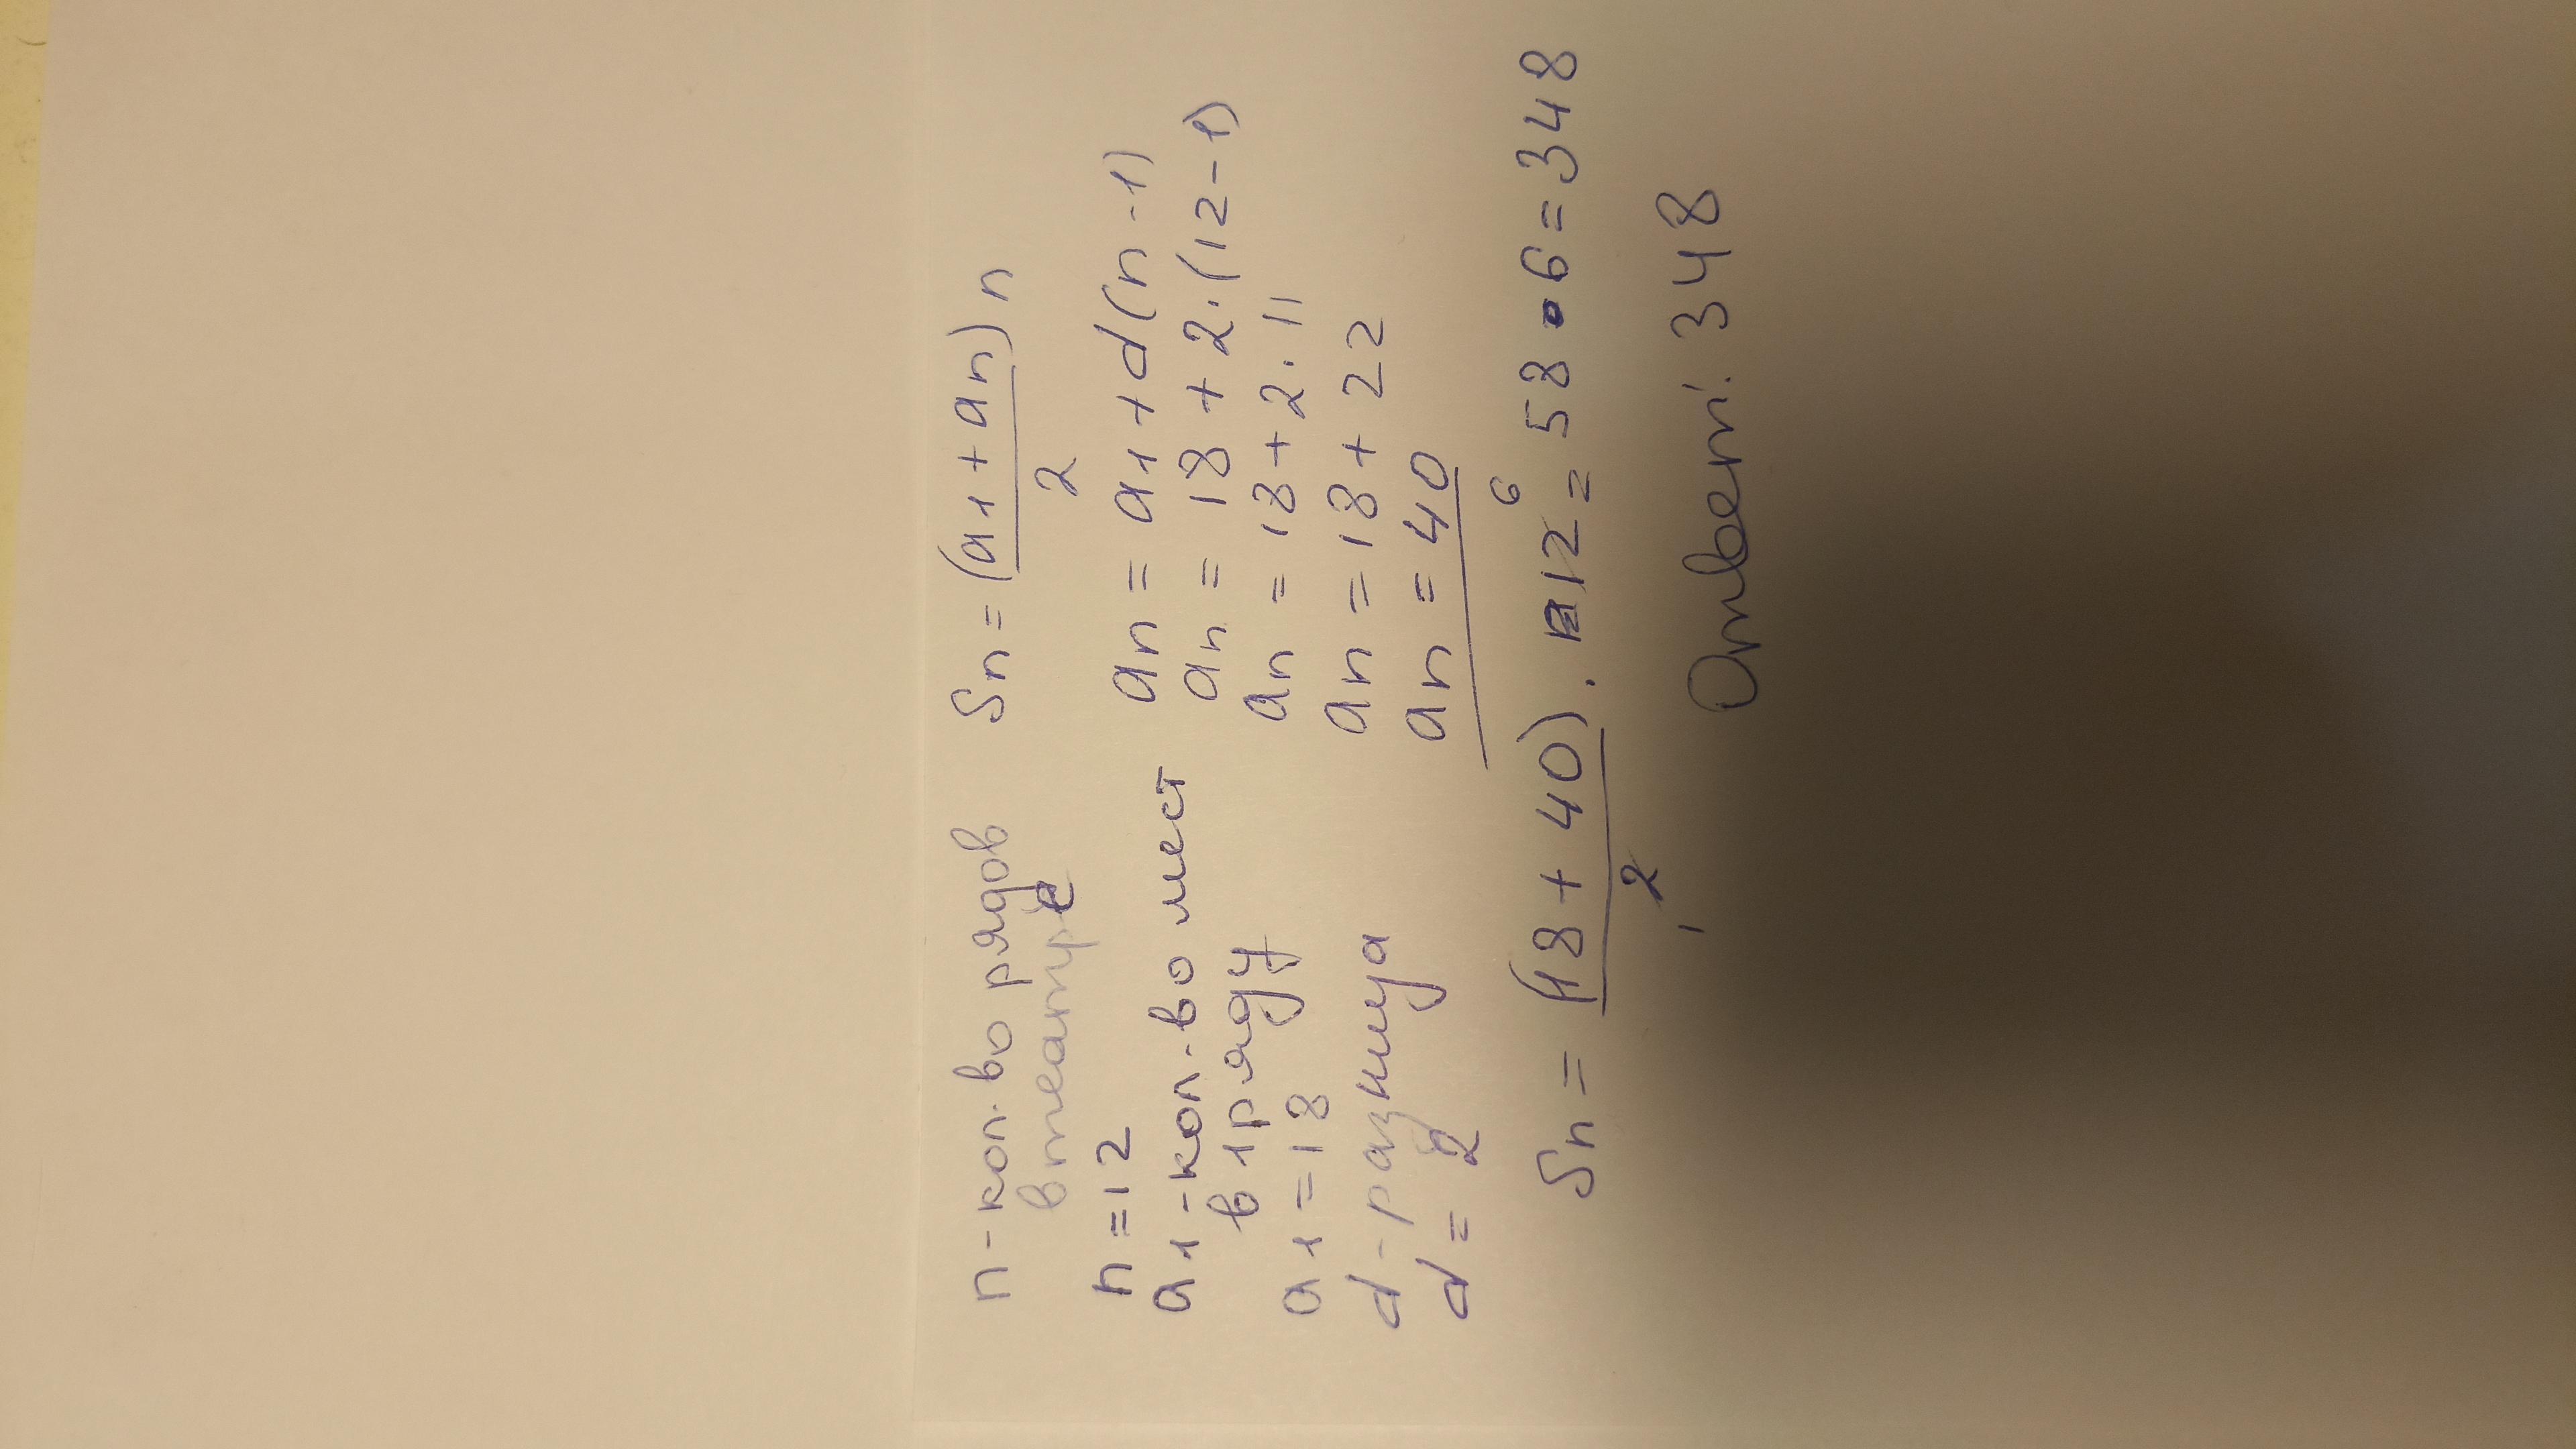 n - кол-во рядов
в театре
n = 12
a1 - кол-во мест
в 1 ряду
a1 = 18
d - разница
d = 2
Sn = (a1 + an) n
2
an = a1 + d(n - 1)
an = 18 + 2 · (12 - 1)
an = 18 + 2 · 11
an = 18 + 22
an = 40
Sn = (18 + 40) · 12 6 = 58 · 6 = 348
1 2
Ответ: 348